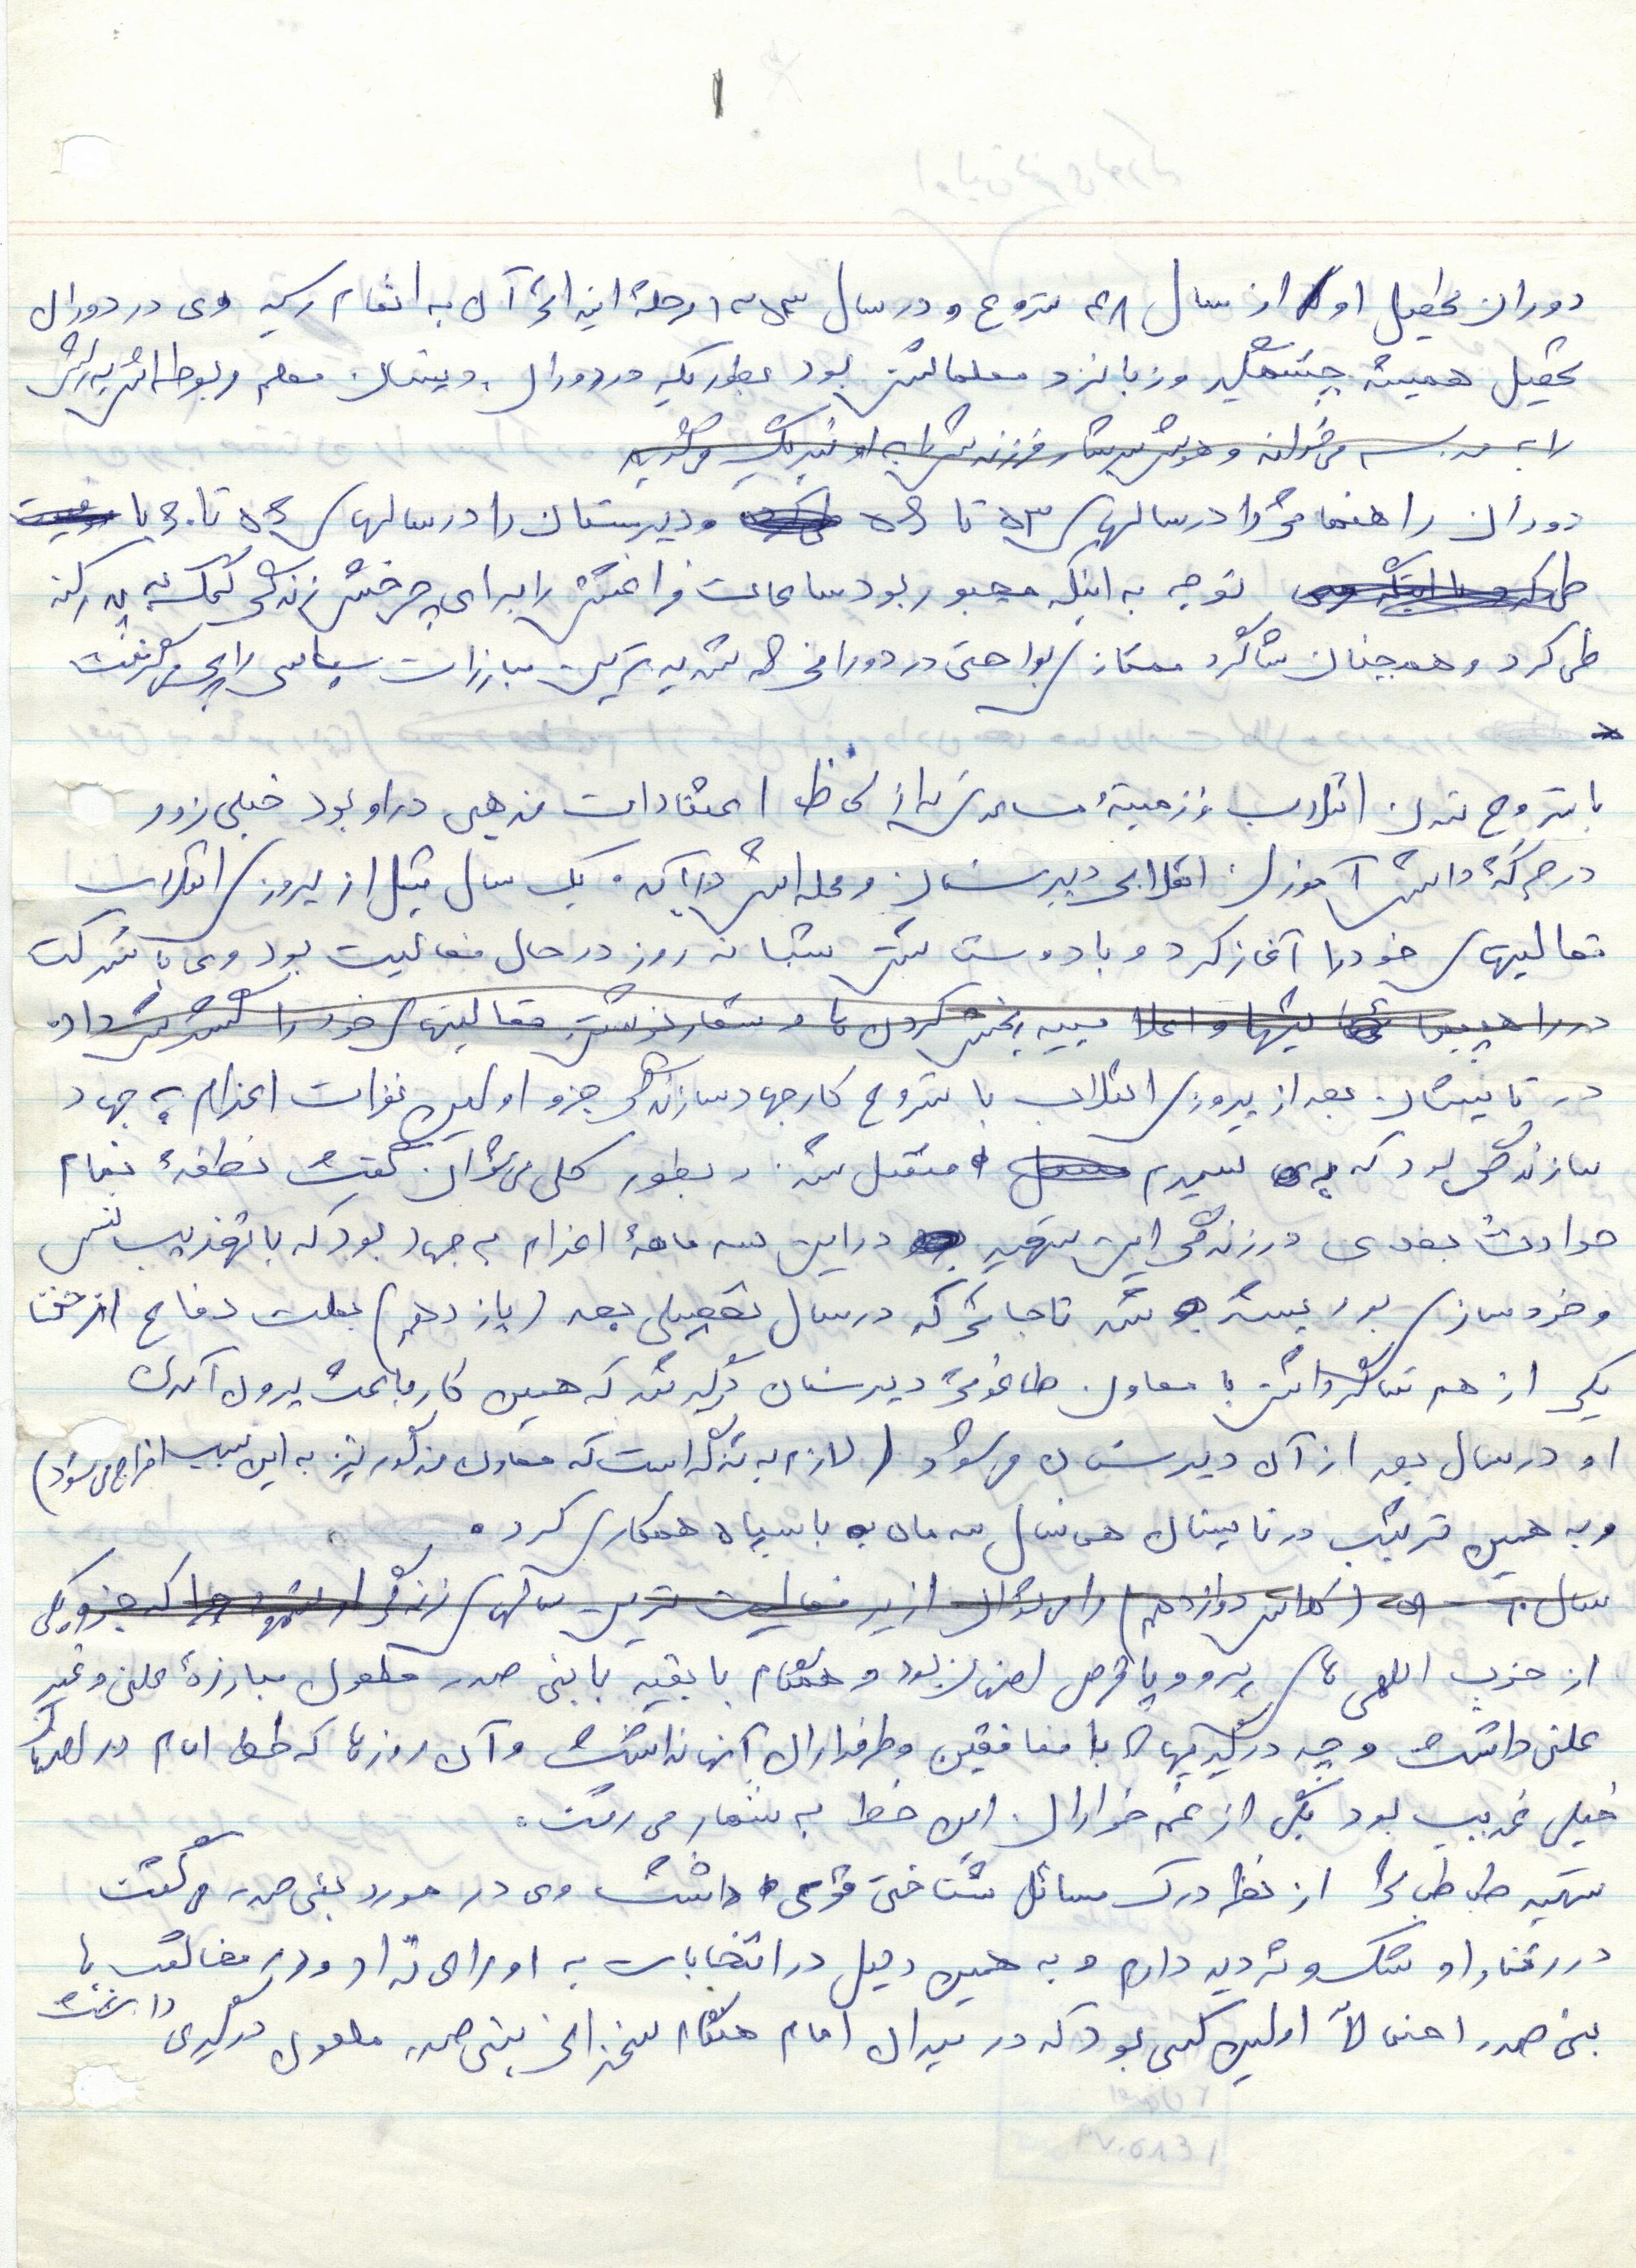 ۱
دوران تحصیل او از سال ۴۸ شروع و در سال ۵۳ مرحلهٔ ابتدائی آن به اتمام رسید وی در دوران
تحصیل همیشه چشمگیر و زبانزد معلمانش بود بطوریکه در دوران دبستان معلم مربوطه اش پدرش
را به مدرسه می خواند و هوش سرشار فرزندش را به او تبریک می گوید
دوران راهنمائی را در سالهای ۵۳ تا ۵۶ و دبیرستان را در سالهای ۵۶ تا ۶۰ با
طی کرد با اینکه وی توجه به اینکه مجبور بود ساعات فراغتش را برای چرخش زندگی کمک به پدر کند
طی کرد و همچنان شاگرد ممتازی بود حتی در دورانی که شدیدترین مبارزات سیاسی را پی می گرفت
با شروع شدن انقلاب و زمینهٔ مساعدی که از لحاظ اعتقادات مذهبی در او بود خیلی زود
در جرگهٔ دانش آموزان انقلابی دبیرستان و محله اش درآمد. یک سال قبل از پیروزی انقلاب
فعالیتهای خود را آغاز کرد و با دوستانش شبانه روز در حال فعالیت بود وی با شرکت
در راهپیمائیها و اعلامیه پخش کردن ها و شعارنویسی فعالیتهای خود را گسترش داد.
در تابستان بعد از پیروزی انقلاب با شروع کار جهاد سازندگی جزو اولین نفرات اعزام به جهاد
سازندگی بود که به سمیرم منتقل شد. و بطور کلی می توان گفت نطفهٔ تمام
حوادث بعدی در زندگی این شهید در این سه ماههٔ اعزام به جهاد بود که با تهذیب نفس
و خودسازی بود بسته شد تا جائی که در سال تحصیلی بعد (یازدهم) بعلت دفاع از حق
یکی از هم شاگردانش با معاون طاغوتی دبیرستان درگیر شد که همین کار باعث بیرون آمدن
او در سال بعد از آن دبیرستان می شود (لازم به تذکر است که معاون مذکور نیز به این سبب اخراج می شود)
و به همین ترتیب در تابستان همان سال سه ماه با سپاه همکاری کرد.
سال ۶۰-۵۹ (کلاس دوازدهم) را می توان از پر فعالیت ترین سالهای زندگی او شمرد چرا که جزو یکی
از حزب اللهی های پیرو و پا قرص اصفهان بود و همگام با بقیه با بنی صدر ملعون مبارزهٔ علنی و غیر
علنی داشت و چه درگیریها که با منافقین و طرفداران آنها نداشت و آن روزها که خط امام در اصفهان
خیلی غریب بود یکی از غمخواران این خط به شمار می رفت.
شهید طباطبائی از نظر درک مسائل شناختی قوی داشت وی در مورد بنی صدر می گفت
در رفتار او شک و تردید دارم و به همین دلیل در انتخابات به او رای نداد و در مخالفت با
بنی صدر احتمالاً اولین کسی بود که در میدان امام هنگام سخنرانی بنی صدر ملعون درگیری داشت